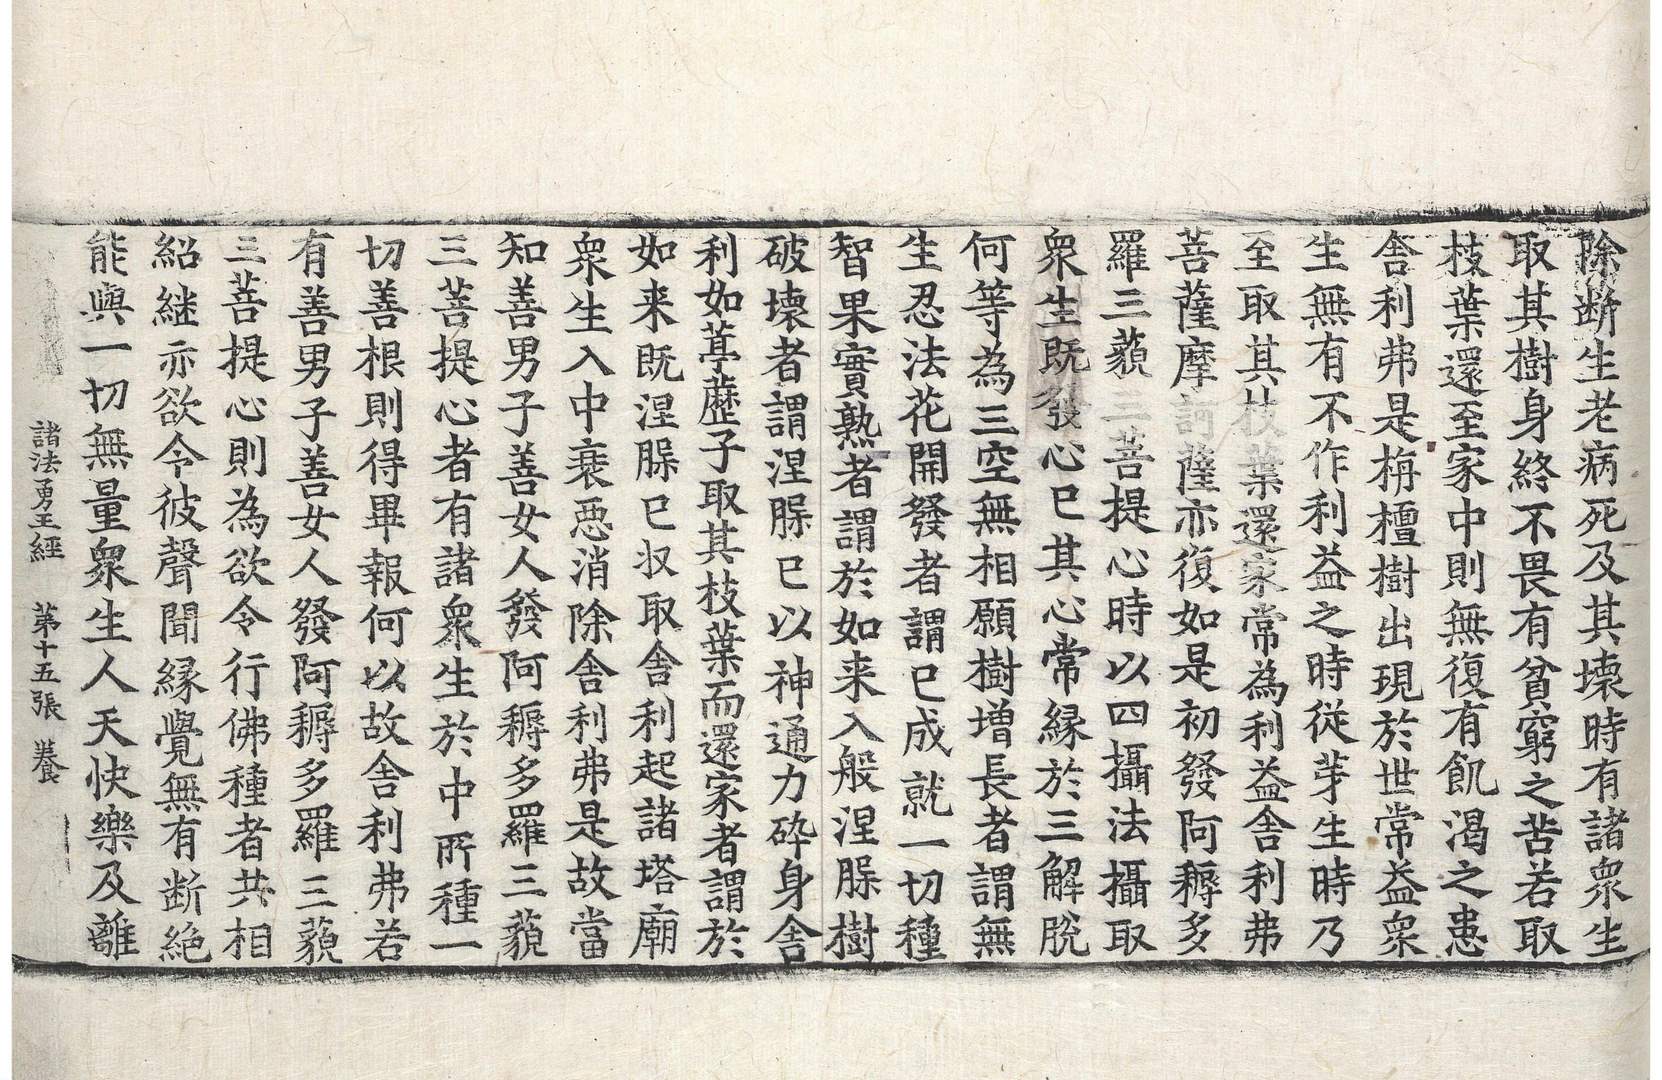 除断生老病死及其壊時有諸衆生
取其樹身終不畏有貧窮之苦若取
枝葉還至家中則無復有飢渴之患
舎利弗是栴檀樹出現於世常益衆
生無有不作利益之時従芽生時乃
至取其枝葉還家常為利益舎利弗
菩薩摩訶薩亦復如是初發阿耨多
羅三藐三菩提心時以四攝法攝取
衆生既發心已其心常縁於三解脫
何等為三空無相願樹増長者謂無
生忍法花開發者謂已成就一切種
智果實熟者謂於如来入般涅槃樹
破壊者謂涅槃已以神通力碎身舎
利如葶藶子取其枝葉而還家者謂於
如来既涅槃已収取舎利起諸塔廟
衆生入中衰惡消除舎利弗是故當
知善男子善女人發阿耨多羅三藐
三菩提心者有諸衆生於中所種一
切善根則得畢報何以故舎利弗若
有善男子善女人發阿耨多羅三藐
三菩提心則為欲令行佛種者共相
紹継亦欲令彼聲聞縁覺無有断絶
能與一切無量衆生人天快樂及離
諸法勇王經　第十五張　養